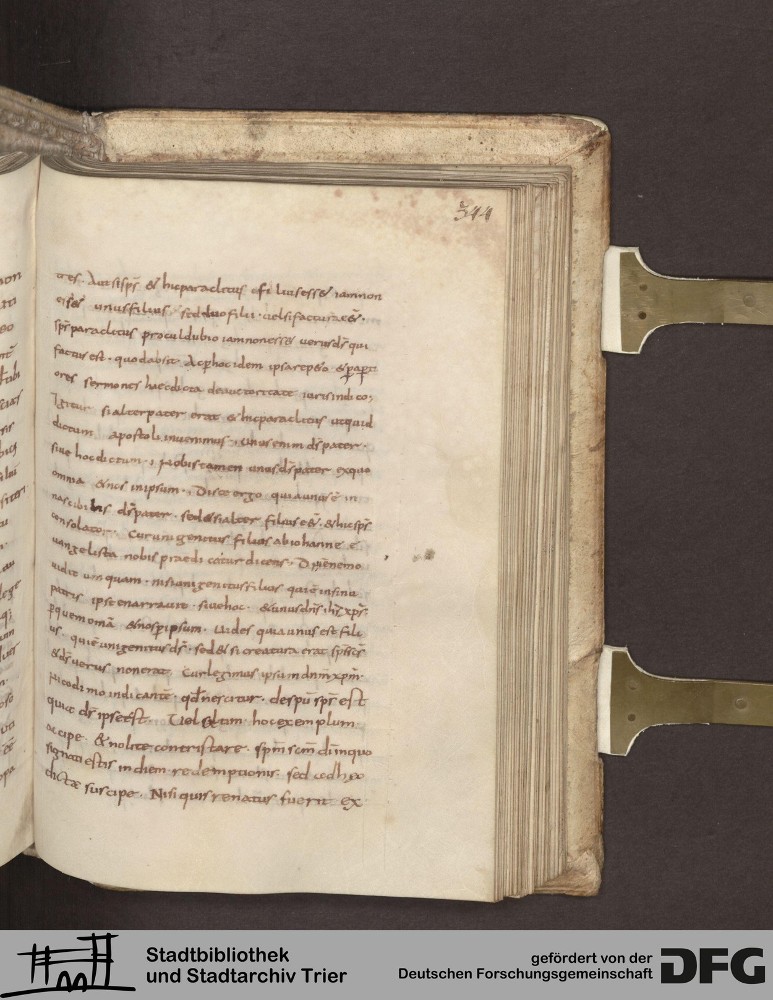 344
tres. Aut si sps & hic paraclitus & filius ess& iam non
ess& unus filius. sed duo filii. uel si factura e&.
sps paraclitus procul dubio iam non ess& uerus ds qui
factus est. quod absit. Ac p hoc idem ipsa repeto & papt
ores sermones haec dicta de auctoritate iuris indico;
Igitur si alter pater erat & hic paraclitus ut quid
dictum apostoli inuenimus. unus enim ds pater.
siue hoc dictum. nobis tamen unus ds pater ex quo
omnia & nos in ipsum. Disce ergo quia unus ē in
nascibilis ds pater. sed & si alter filius e&. & hic sps
consolator. Cur unigenitus filius ab iohanne e
uangelista nobis praedicatur dicens. Dm nemo
uidit umquam. nisi unigenitus filius qui ē in sinu
patris ipse enarrauit. siue hoc. & unus dns ihs xps.
p quem omā & nos p ipsum. Uides quia unus est fili
us. qui ē unigenitus ds. sed & si creatura erat sps scs
& ds uerus non erat. Cur legimus ipsum dnm xpm
nicodimo indicante. qd nescitur. de spu sps est
quia ds ipse est. Uel saltim hoc exemplum
accipe. & nolite contristare. spm scm di in quo
signati estis in diem redemptionis. sed ad haec
dicta suscipe. Nisi quis renatus fuerit ex
Stadtbibliothek
und Stadtarchiv Trier
gefördert von der
Deutschen Forschungsgemeinschaft
DFG